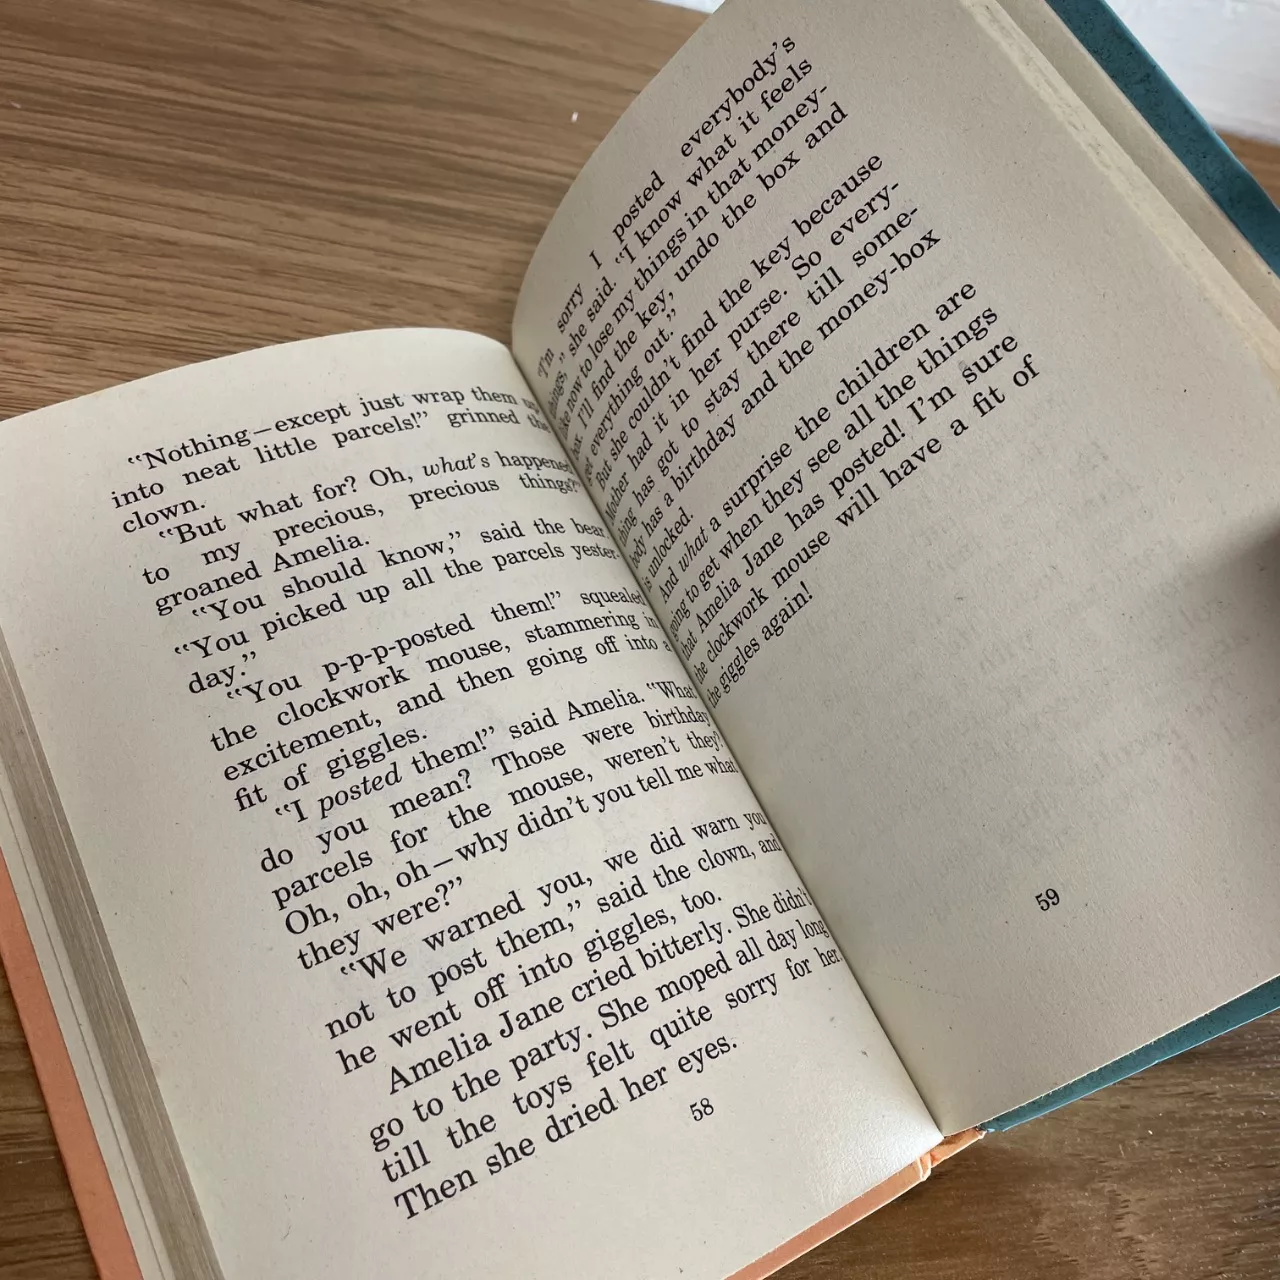 “Nothing—except just wrap them up
into neat little parcels!” grinned the
clown.
“But what for? Oh, what’s happened
to my precious, precious things?”
groaned Amelia.
“You should know,” said the bear.
“You picked up all the parcels yester-
day.”
“You p-p-p-posted them!” squealed
the clockwork mouse, stammering in
excitement, and then going off into a
fit of giggles.
“I posted them!” said Amelia. “What
do you mean? Those were birthday
parcels for the mouse, weren’t they?
Oh, oh, oh—why didn’t you tell me what
they were?”
“We warned you, we did warn you
not to post them,” said the clown, and
he went off into giggles, too.
Amelia Jane cried bitterly. She didn’t
go to the party. She moped all day long
till the toys felt quite sorry for her.
Then she dried her eyes.
58
“I’m sorry I posted everybody’s
things,” she said. “I know what it feels
like now to lose my things in that money-
box. I’ll find the key, undo the box and
get everything out.”
But she couldn’t find the key because
Mother had it in her purse. So every-
thing has got to stay there till some-
body has a birthday and the money-box
is unlocked.
And what a surprise the children are
going to get when they see all the things
that Amelia Jane has posted! I’m sure
the clockwork mouse will have a fit of
the giggles again!
59